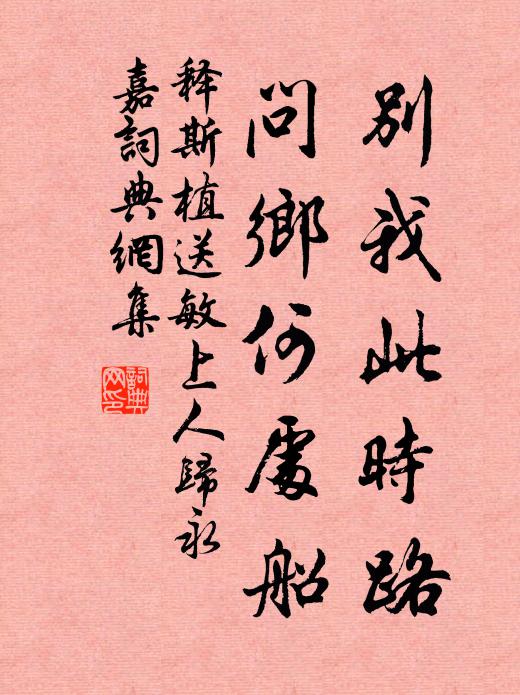 別我此時路
問鄉何處船
释斯植送敏上人歸永
嘉詞典網集
詞典
网印